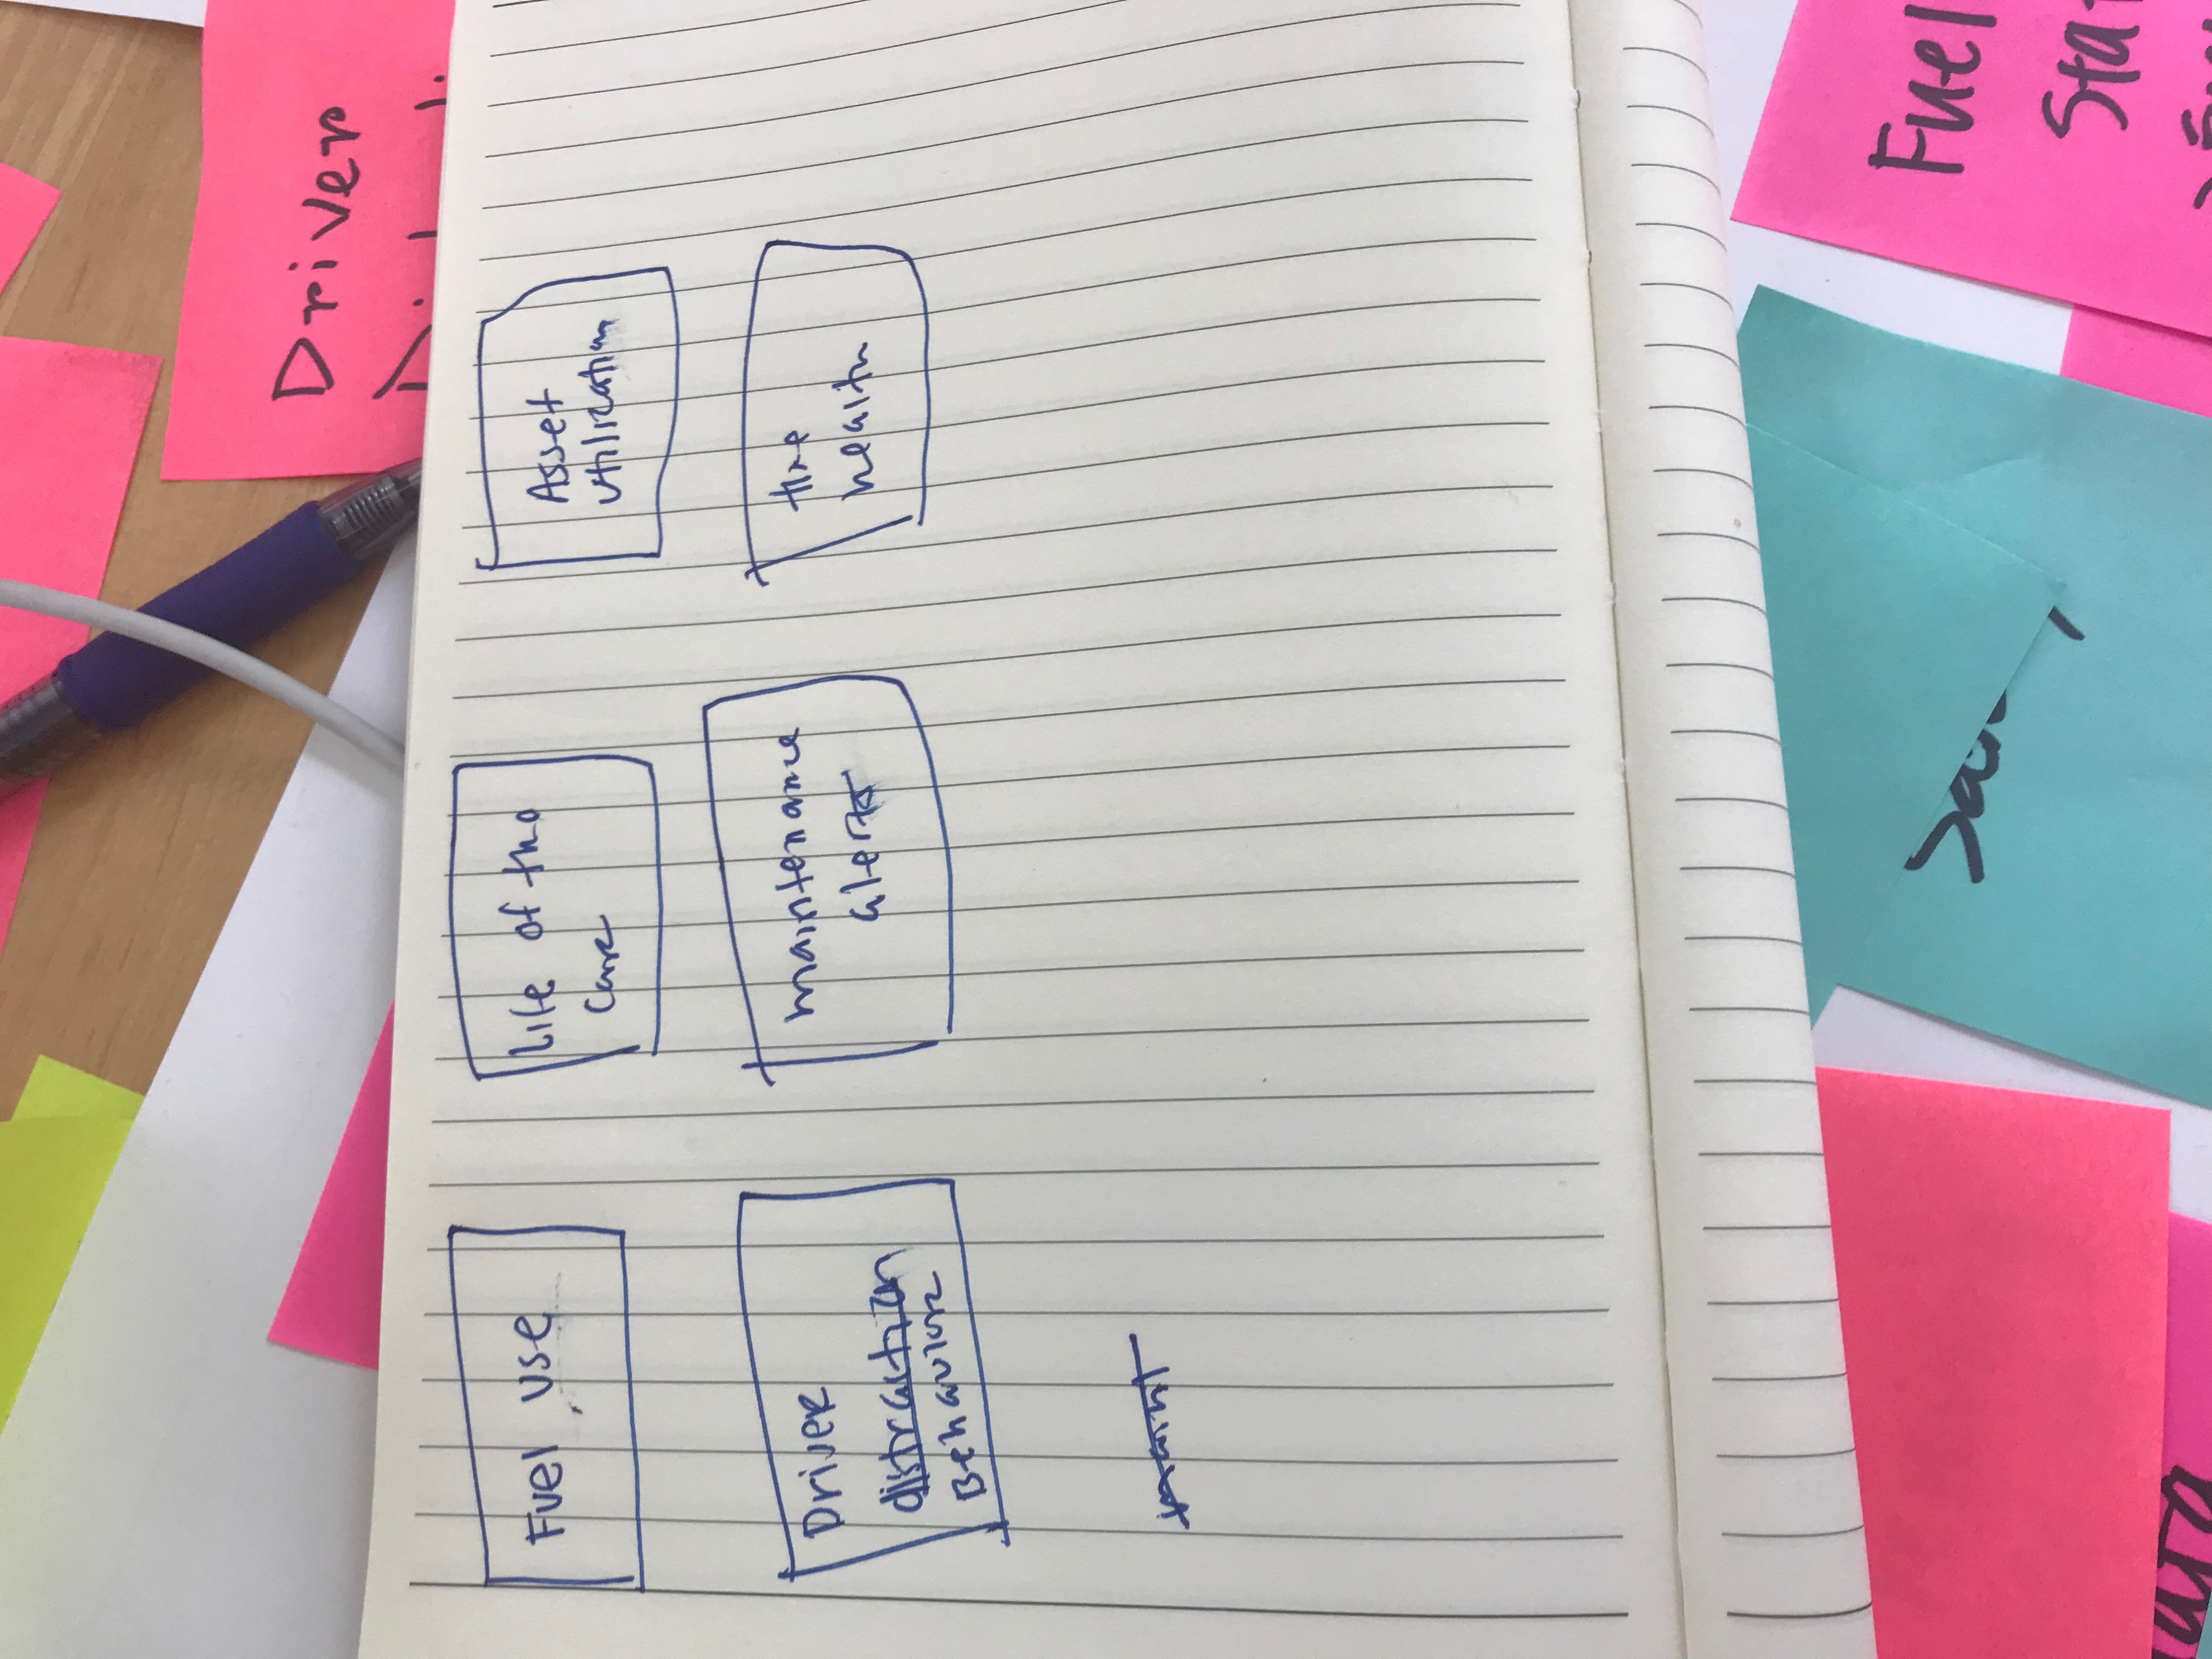 Driver
Fuel use
Life of the
Care
Asset
utilization
Driver
distraction
Behavior
maintenance
alerts
tire
health
maint
Fuel
Sta